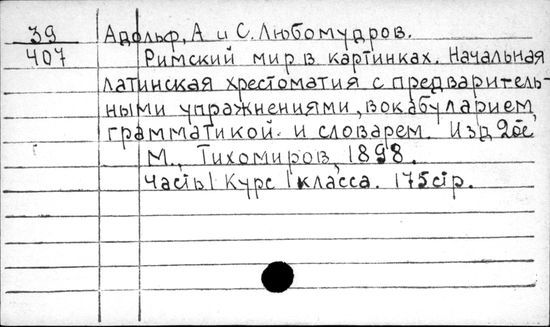 39 Адольф, А и С. Любомудров.
407 Римский мир в картинках. Начальная
латинская хрестоматия с предваритель-
ными упражнениями, вокабуларием,
грамматикой и словарем. Изд 2ое
М., Тихомиров, 1898.
Часть I Курс I класса. 175 стр.